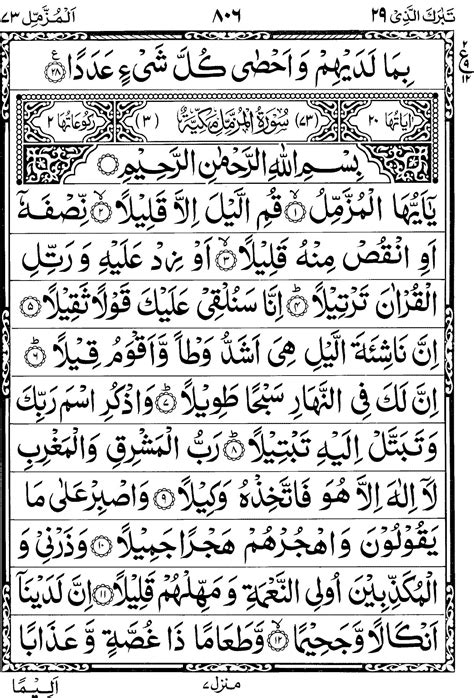 تَبٰرَكَ الَّذِیْ ۲۹
۸۰۶
اَلْمُزَّمِّل ۷۳
بِمَا لَدَیْهِمْ وَ اَحْصٰی كُلَّ شَیْءٍ عَدَدًا ۲۸ ع
۲
ع
۹
۱۲
اٰیَاتُهَا ۲۰ (۷۳) سُوْرَةُ الْمُزَّمِّلِ مَكِّیَّةٌ (۳) رُكُوْعَاتُهَا ۲
بِسْمِ اللّٰهِ الرَّحْمٰنِ الرَّحِیْمِ
یٰۤاَیُّهَا الْمُزَّمِّلُ ۱ قُمِ الَّیْلَ اِلَّا قَلِیْلًا ۲ نِّصْفَهٗۤ
اَوِ انْقُصْ مِنْهُ قَلِیْلًا ۳ اَوْ زِدْ عَلَیْهِ وَ رَتِّلِ
الْقُرْاٰنَ تَرْتِیْلًا ۴ اِنَّا سَنُلْقِیْ عَلَیْكَ قَوْلًا ثَقِیْلًا ۵
اِنَّ نَاشِئَةَ الَّیْلِ هِیَ اَشَدُّ وَطْاً وَّ اَقْوَمُ قِیْلًا ۶
اِنَّ لَكَ فِی النَّهَارِ سَبْحًا طَوِیْلًا ۷ وَ اذْكُرِ اسْمَ رَبِّكَ
وَ تَبَتَّلْ اِلَیْهِ تَبْتِیْلًا ۸ رَبُّ الْمَشْرِقِ وَ الْمَغْرِبِ
لَاۤ اِلٰهَ اِلَّا هُوَ فَاتَّخِذْهُ وَكِیْلًا ۹ وَ اصْبِرْ عَلٰی مَا
یَقُوْلُوْنَ وَ اهْجُرْهُمْ هَجْرًا جَمِیْلًا ۱۰ وَ ذَرْنِیْ وَ
الْمُكَذِّبِیْنَ اُولِی النَّعْمَةِ وَ مَهِّلْهُمْ قَلِیْلًا ۱۱ اِنَّ لَدَیْنَاۤ
اَنْكَالًا وَّ جَحِیْمًا ۱۲ وَّ طَعَامًا ذَا غُصَّةٍ وَّ عَذَابًا
منزل ۷
اَلِیْمًا